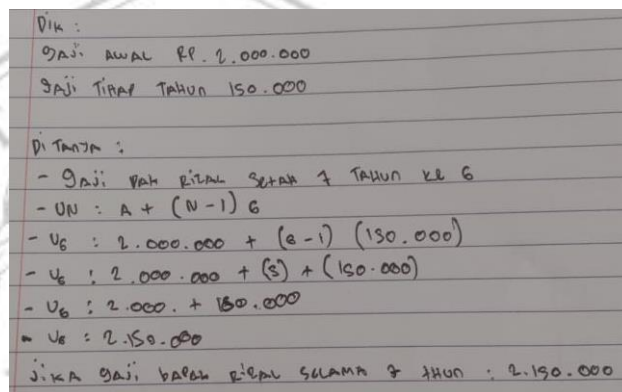 Dik :
gaji AWAL RP. 2.000.000
gaji TiAP TAHUn 150.000
Di TAnYA :
- gaji PAK RIZAL SETAH 7 TAHUn KE 6
- UN : A + (N - 1) 6
- U6 : 2.000.000 + (6 - 1) (150.000)
- U6 : 2.000.000 + (5) + (150.000)
- U6 : 2.000. + 150.000
- U6 : 2.150.000
JiKA gAJi bAPAK RIZAL SELAMA 7 tHUn : 2.150.000